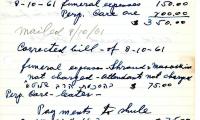 8-10-61 funeral expenses 150.00
Perp. Care one 200.00
$ 350.00
mailed 8/10/61
Corrected bill - of 8-10-61
funeral expense - Shroud &
not charged - attendant not charged
$ 75.00
Perp. Care - Later -
Payments to shule